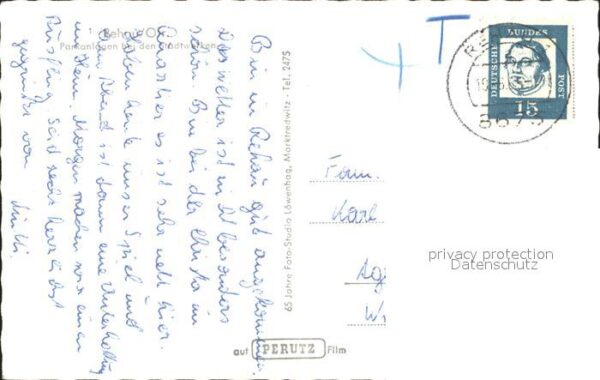 Rehau/O
Parkanlagen bei den Stadtwerken
Bin in Rehau gut angekommen
Das Wetter ist nicht besonders
schön. Bin bei der Christa im
Quartier es ist sehr nett hier.
Haben heute unser Spiel und
am Abend ist dann eine Unterhaltung
im Heim. Morgen machen wir einen
Ausflug. Seid recht herzlichst
gegrüßt von
65 Jahre Foto-Studio Löwenhag, Marktredwitz - Tel. 2475
auf PERUTZ Film
T
DEUTSCHE BUNDESPOST
15
8673
Fam.
Karl
privacy protection
Datenschutz